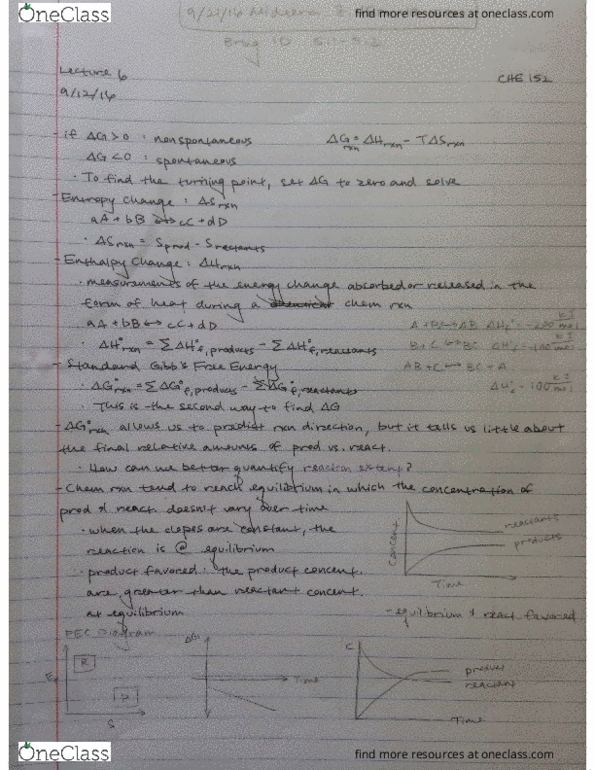 OneClass
find more resources at oneclass.com
9/21/16 Midterm
5.1-5.2
Lecture 6
CHE 152
9/12/16
- if ΔG > 0 : nonspontaneous
ΔGrxn = ΔHrxn - TΔSrxn
ΔG < 0 : spontaneous
· To find the turning point, set ΔG to zero and solve
- Entropy change : ΔSrxn
aA + bB ↔ cC + dD
· ΔSrxn = Sprod - Sreactants
- Enthalpy Change : ΔHrxn
· measurements of the energy change absorbed or released in the
form of heat during a chem rxn
aA + bB ↔ cC + dD
A + B ↔ AB ΔH°f = -200 kJ/mol
· ΔH°rxn = Σ ΔH°f, products - Σ ΔH°f, reactants
B + C ↔ BC ΔH°f = -100 kJ/mol
- Standard Gibb's Free Energy
AB + C ↔ BC + A
· ΔG°rxn = Σ ΔG°f, products - Σ ΔG°f, reactants
100 kJ/mol
· This is the second way to find ΔG
- ΔG°rxn allows us to predict rxn direction, but it tells us little about
the final relative amounts of prod vs. react.
· How can we better quantify reaction extent?
- Chem rxn tend to reach equilibrium in which the concentration of
prod & react. doesn't vary over time
· when the slopes are constant, the
reaction is @ equilibrium
· product favored : the product concent.
are greater than reactant concent.
at equilibrium
Concent
reactants
products
Time
- equilibrium & react favored
PEC Diagram
R
P
S
ΔG
Time
C
product
reactant
Time
OneClass
find more resources at oneclass.com